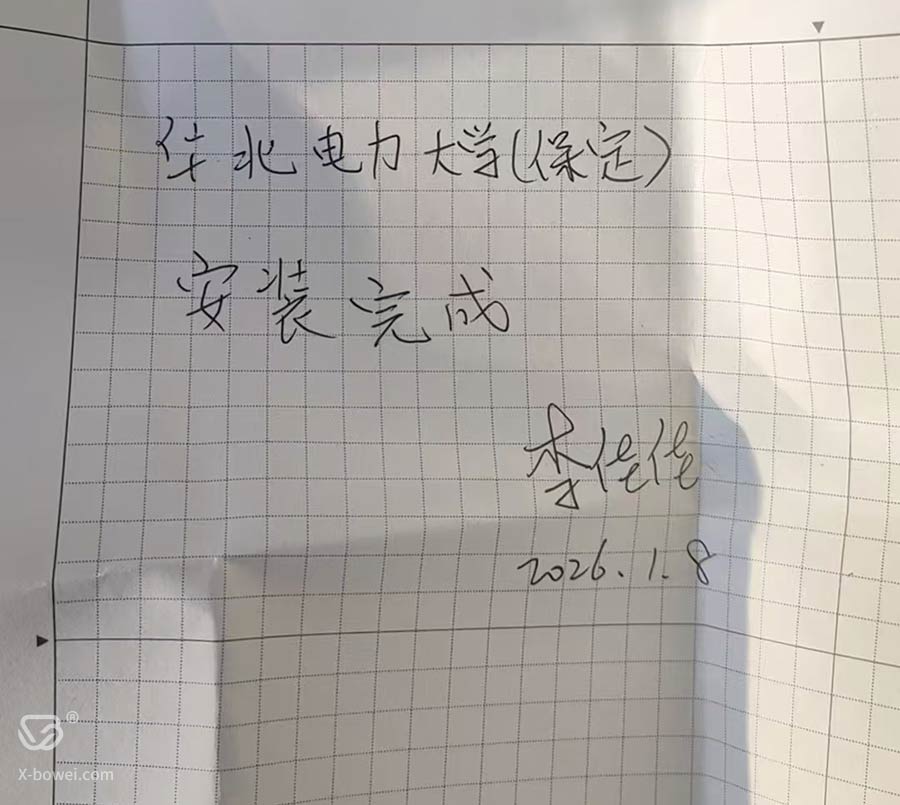 华北电力大学(保定)
安装完成
李佳佳
2026.1.8
®
X-bowei.com